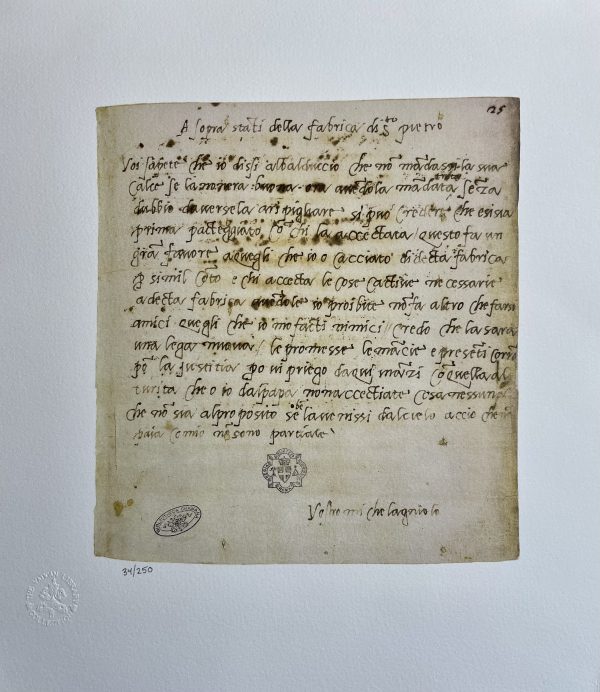 125
A soprastanti della fabrica di sto pietro
Voi sapete che io dissi a balduccio che no mandassi la sua
calce se la non era buona ora avedola madata trista seza
dubbio d averse la a ripigliare si può credere che e si sia
prima pacteggiato co chi la accectata questo fa un
gra favore a quegli che io o cacciato di decta fabrica
p simil coto e chi accecta le cose cactive necessarie
a decta fabrica avedole io proibite no fa altro che farsi
amici quegli che io mo facti inimici // credo che la sara
una lega nuova / le promesse le mancie e preseti corro
pō la justitia po vi priego da qui inazi co quella al
turita che o io dal papa non accectiate cosa nessuna
che no sia al proposito se be la venissi dal cielo accio che no
paia come no sono partiale
Vostro michelagniolo
34/250